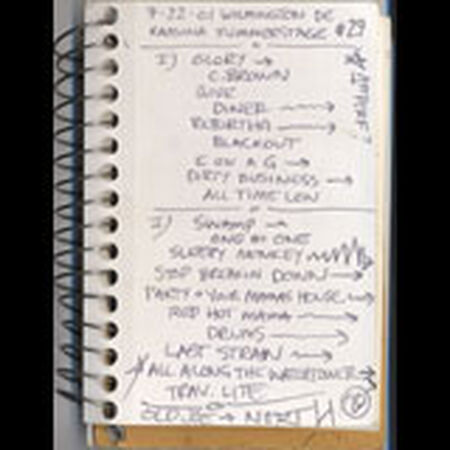 7-22-01 WILMINGTON DE
KAHUNA SUMMERSTAGE #29
I) GLORY →
C. BROWN
GIVE
DINER →
REBIRTHA →
BLACKOUT
C ON A G →
DIRTY BUSINESS →
ALL TIME LOW
II) SWAMP →
ONE BY ONE
SLEEPY MONKEY
STOP BREAKIN DOWN →
PARTY @ YOUR MAMAS HOUSE →
RED HOT MAMA →
DRUMS →
LAST STRAW →
* ALL ALONG THE WATCHTOWER →
TRAV. LITE